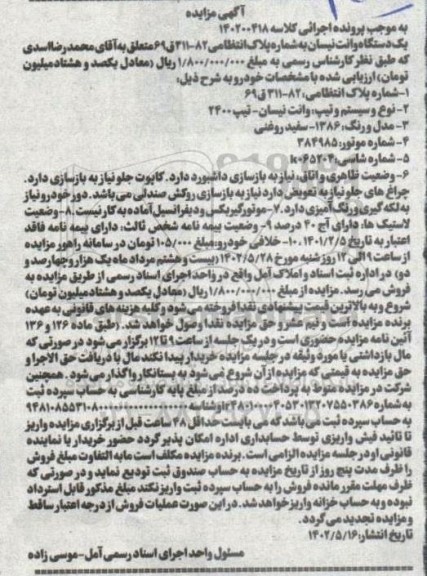 آگهی مزایده
به موجب پرونده اجرائی کلاسه ۱۴۰۲۰۰۴۱۸
یک دستگاه وانت نیسان به شماره پلاک انتظامی ۸۲-۳۱۱ق۶۹ متعلق به آقای محمدرضا اسدی
که طبق نظر کارشناس رسمی به مبلغ ۱/۸۰۰/۰۰۰/۰۰۰ ریال (معادل یکصد و هشتاد میلیون
تومان) ارزیابی شده با مشخصات خودرو به شرح ذیل:
۱-شماره پلاک انتظامی: ۸۲-۳۱۱ق۶۹
۲-نوع و سیستم و تیپ: وانت نیسان- تیپ ۲۴۰۰
۳- مدل و رنگ: ۱۳۸۶- سفید روغنی
۴- شماره موتور: ۳۸۴۹۸۵
۵- شماره شاسی: k۰۶۵۲۰۴
۶- وضعیت ظاهری و اتاق: نیاز به بازسازی داشبورد دارد. کاپوت جلو نیاز به بازسازی دارد.
چراغ های جلو نیاز به تعویض دارد نیاز به بازسازی روکش صندلی می باشد. دور خودرو نیاز
به لکه گیری و رنگ آمیزی دارد. ۷-موتور گیربکس و دیفرانسیل آماده به کار نیست. ۸-وضعیت
لاستیک ها: دارای آج ۴۰ درصد ۹- وضعیت بیمه نامه شخص ثالث: دارای بیمه نامه فاقد
اعتبار به تاریخ ۱۴۰۱/۲/۵ ۱۰-خلافی خودرو: مبلغ ۱۰۵/۰۰۰ تومان در سامانه راهور مزایده
از ساعت ۹ الی ۱۲ روز شنبه مورخ ۱۴۰۲/۵/۲۸ (بیست و هشتم مرداد ماه یک هزار و چهارصد و
دو) در اداره ثبت اسناد و املاک آمل واقع در واحد اجرای اسناد رسمی از طریق مزایده به
فروش می رسد. مزایده از مبلغ ۱/۸۰۰/۰۰۰/۰۰۰ ریال (معادل یکصد و هشتاد میلیون تومان)
شروع و به بالاترین قیمت پیشنهادی نقدا فروخته می شود و کلیه هزینه های قانونی به عهده
برنده مزایده است و نیم عشر و حق مزایده نقدا وصول خواهد شد. (طبق ماده ۱۲۶ و ۱۳۶
آئین نامه مزایده حضوری است و در یک جلسه از ساعت ۹ تا ۱۲ برگزار می شود در صورتی که
مال بازداشتی یا مورد وثیقه در جلسه مزایده خریدار پیدا نکند مال با دریافت حق الاجرا و
حق مزایده به قیمتی که مزایده از آن شروع می شود به بستانکار واگذار می شود. همچنین
شرکت در مزایده منوط به پرداخت ده درصد از مبلغ پایه کارشناسی به حساب سپرده ثبت
به شماره
به حساب سپرده ثبت می باشد که می بایست حداقل ۴۸ ساعت قبل از برگزاری مزایده واریز
تا تائید فیش واریزی توسط حسابداری اداره امکان پذیر گردد حضور خریدار یا نماینده
قانونی او در جلسه مزایده الزامی است. برنده مزایده مکلف است مابه التفاوت مبلغ فروش
را ظرف مدت پنج روز از تاریخ مزایده به حساب صندوق ثبت تودیع نماید و در صورتی که
ظرف مهلت مقرر مانده فروش را به حساب سپرده ثبت واریز نکند مبلغ مذکور قابل استرداد
نبوده و به حساب خزانه واریز خواهد شد. در این صورت عملیات فروش از درجه اعتبار ساقط
و مزایده تجدید می گردد.
تاریخ انتشار: ۱۴۰۲/۵/۱۶
مسئول واحد اجرای اسناد رسمی آمل-موسی زاده